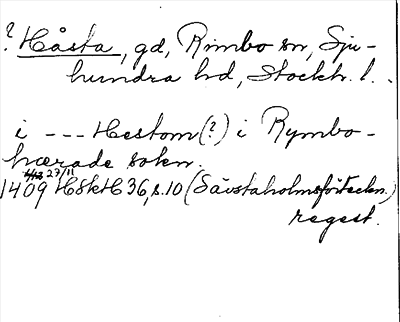 ? Håsta, gd, Rimbo sn, Sju-
hundra hd, Stockh. l.
i --- Hestom (?) i Rymbo-
hærade sokn.
1409 27/11 HSkH 36, s. 10 (Sävstaholmsförteckn.)
regest.